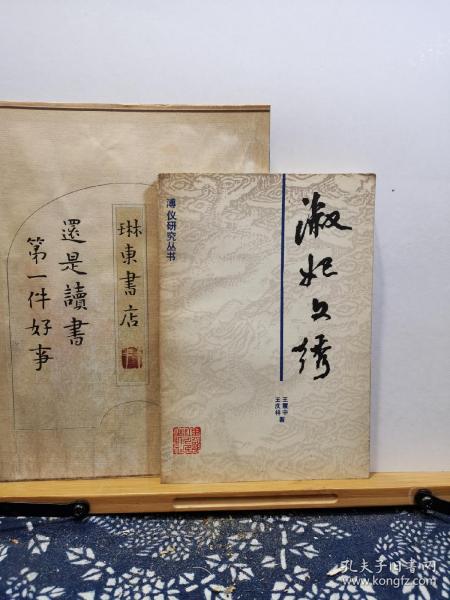 琳東書店
還是讀書
第一件好事
溥仪研究丛书
淑妃文绣
王庆祥
著
孔夫子旧书网
www.kongfz.com